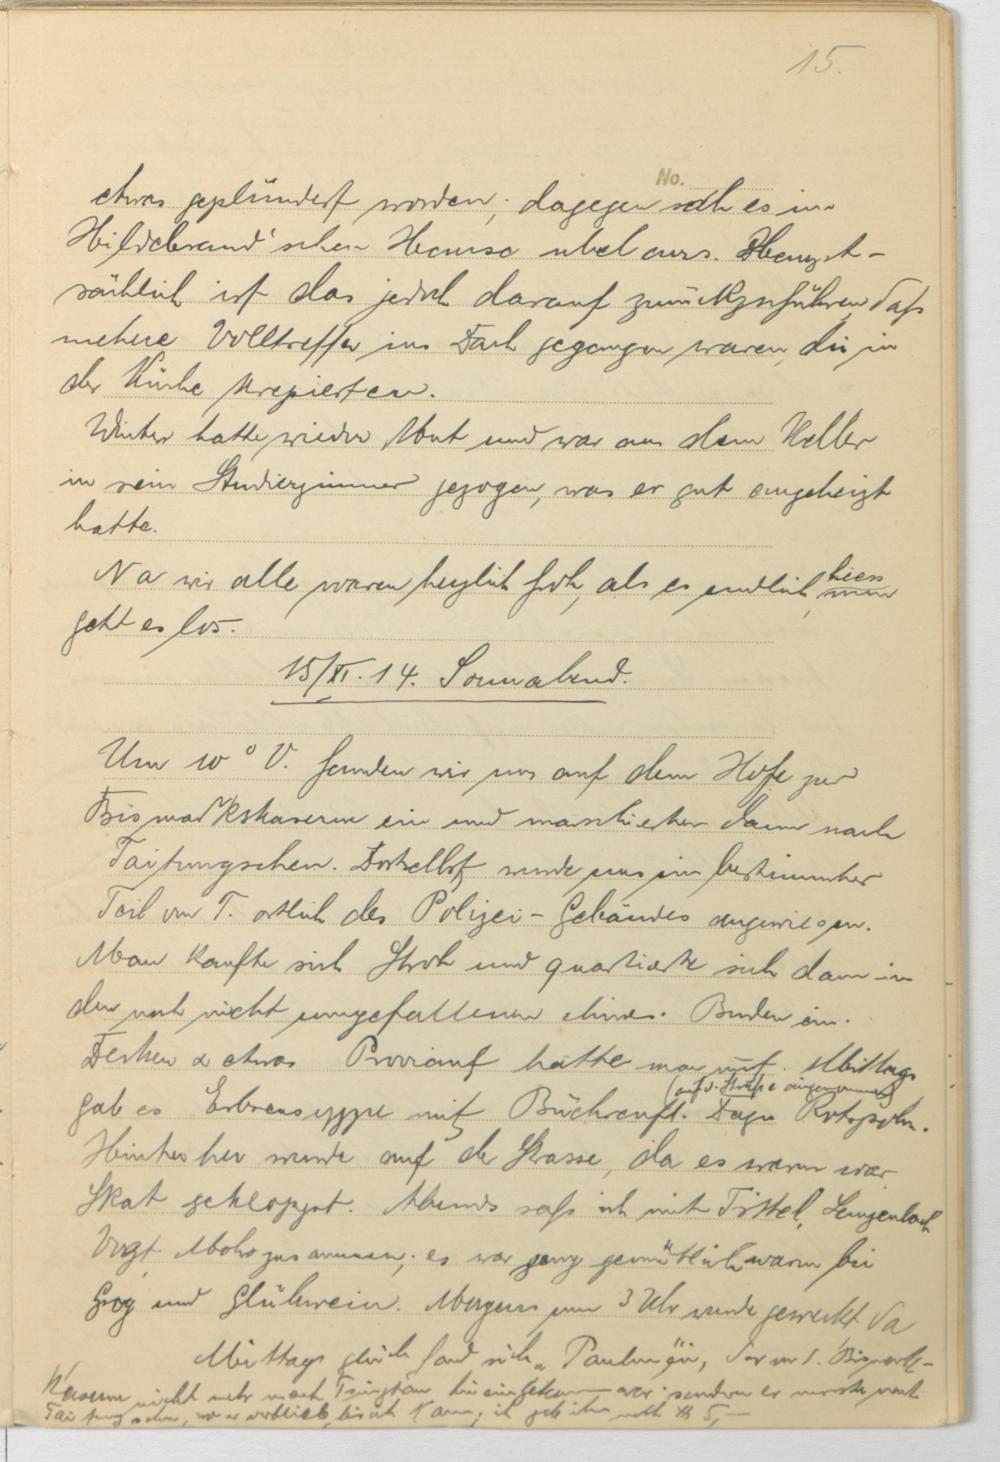 15.
No.
etwas geplündert worden; dagegen sah es im
Hildebrand'schen Hause übel aus. Haupt-
sächlich ist das jedoch darauf zurückzuführen, daß
mehere Volltreffer ins Dach gegangen waren, die in
der Küche krepierten.
Winter hatte wieder Mut und war aus dem Keller
in sein Studierzimmer gezogen, was er gut eingeheizt
hatte.
Na wir alle waren herzlich froh, als es endlich hiess
geht es los.
15/XI.14. Sonnabend.
Um 10° V. fanden wir uns auf dem Hofe zur
Bismarkskaserne ein und marschierten dann nach
Taitungschen. Dortselbst wurde uns ein bestimmter
Teil von T. östlich des Polizei-Gebäudes angewiesen.
Man kaufte sich Stroh und quartierte sich dann in
den noch nicht umgefallenen chines. Buden ein.
Decken & etwas Proviant hatte man mit. Mittags
(auf d. Straße eingenommen)
gab es Erbsensuppe mit Büchsenfl. Dazu Rotspohn.
Hinterher wurde auf der Strasse, da es warm war
Skat gekloppt. Abends saß ich mit Tittel,
Vogt Mohr zusammen; es war ganz gemütlich warm bei
Grog und Glühwein. Morgens um 3 Uhr wurde geweckt da
Mittags fand sich "Paulinchen, der von d. Bismark-
Kaserne nicht mehr nach Tsingtau war sondern er musste nach
Taitungschen, wo er verblieb, bis ich kam; ich gab ihm noch 5,—